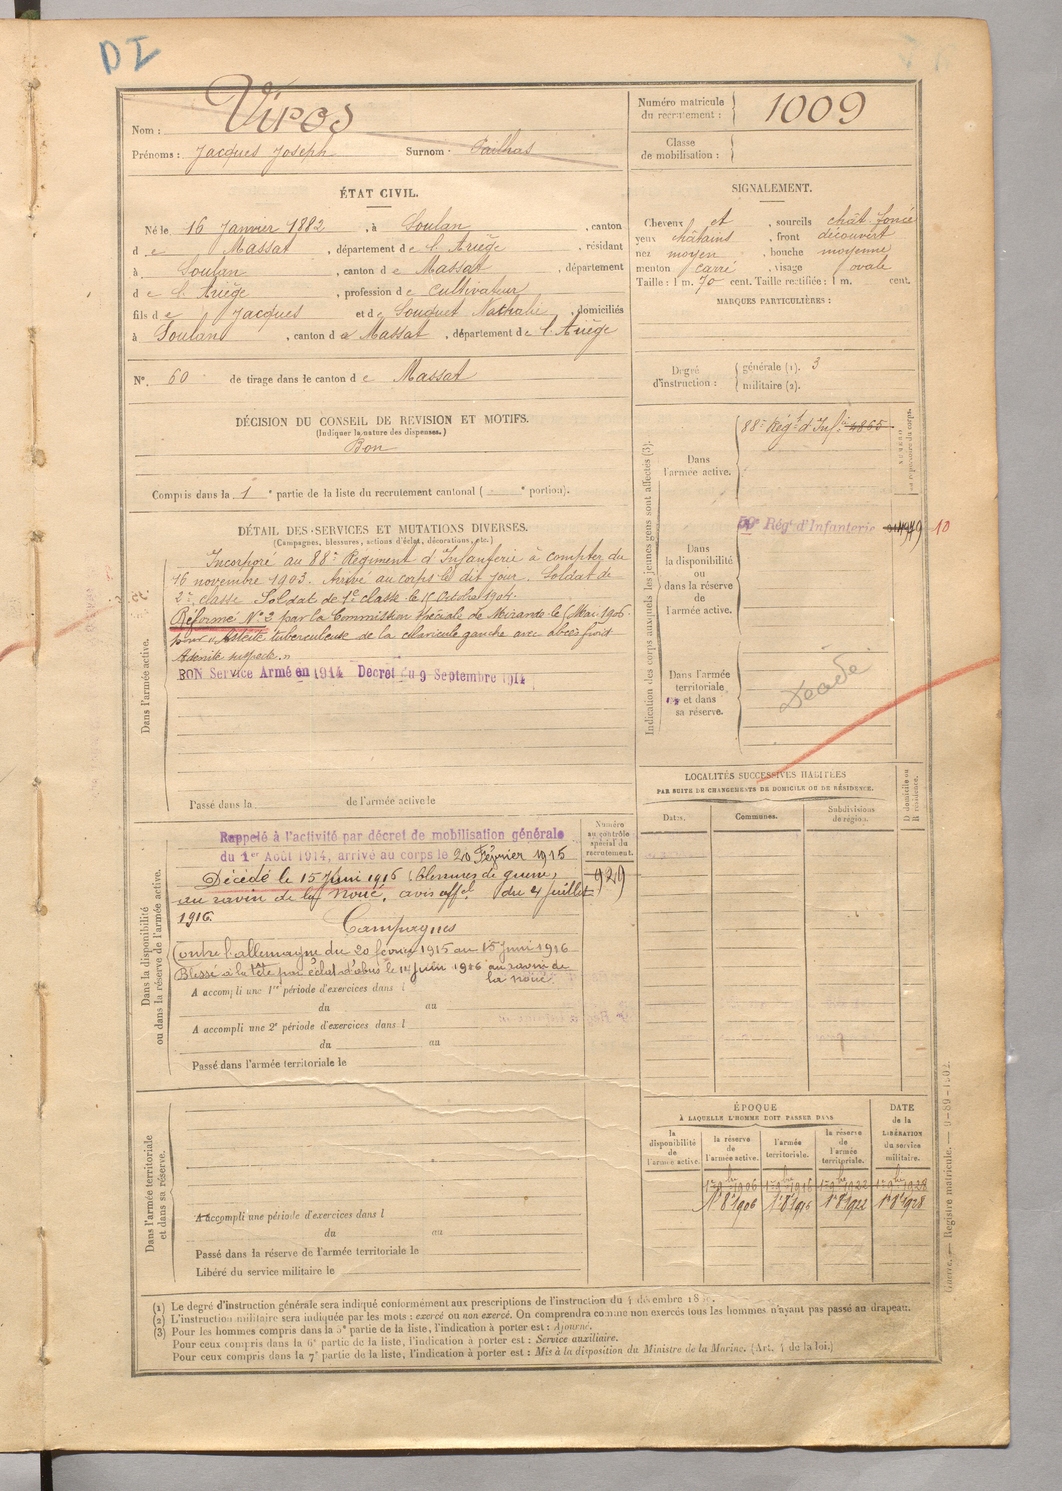 DI
Nom : Viros
Prénoms : Jacques Joseph Surnom : Pailhas
Numéro matricule du recrutement : 1009
Classe de mobilisation :
ÉTAT CIVIL.
Né le 16 Janvier 1882, à Soulan, canton
d e Massat, département de l'Ariège, résidant
à Soulan, canton d e Massat, département
d e l'Ariège, profession de cultivateur
fils de Jacques et de Souquet Nathalie, domiciliés
à Soulan, canton de Massat, département de l'Ariège
N° 60 de tirage dans le canton de Massat
SIGNALEMENT.
Cheveux et, sourcils chât. foncé
yeux châtains, front découvert
nez moyen, bouche moyenne
menton carré, visage ovale
Taille : 1 m. 70 cent. Taille rectifiée : 1 m. cent.
MARQUES PARTICULIÈRES :
Degré d'instruction : générale (1). 3
militaire (2).
DÉCISION DU CONSEIL DE REVISION ET MOTIFS.
(Indiquer la nature des dispenses.)
Bon
Compris dans la 1e partie de la liste du recrutement cantonal ( e portion).
DÉTAIL DES SERVICES ET MUTATIONS DIVERSES.
(Campagnes, blessures, actions d'éclat, décorations, etc.)
Dans l'armée active.
Incorporé au 88e Régiment d'Infanterie à compter du
16 novembre 1903. Arrivé au corps le dit jour. Soldat de
2e classe Soldat de 1e classe le 15 Octobre 1904.
Réformé N° 3 par la Commission spéciale de Mirande le 5 Mai 1906
pour "Ostéite tuberculeuse de la clavicule gauche avec abcès froid
Adénite suspecte."
BON Service Armé en 1914 Decret du 9 Septembre 1914
Passé dans la de l'armée active le
Indication des corps auxquels les jeunes gens sont affectés (3).
NUMÉROS au répertoire du corps.
Dans l'armée active.
88e Régt d'Infie 4865
59e Régt d'Infanterie 10
Dans la disponibilité ou dans la réserve de l'armée active.
Dans l'armée territoriale et dans sa réserve.
LOCALITÉS SUCCESSIVES HABITÉES
PAR SUITE DE CHANGEMENTS DE DOMICILE OU DE RÉSIDENCE.
Dates. Communes. Subdivisions de région. D domicile ou R résidence.
Dans la disponibilité ou dans la réserve de l'armée active.
Numéro au contrôle spécial du recrutement.
929
Rappelé à l'activité par décret de mobilisation générale
du 1er Août 1914, arrivé au corps le 20 Février 1915
Décédé le 15 Juin 1916 (blessures de guerre)
au ravin de la Noué, avis offel du 4 Juillet
1916.
Campagnes
Contre l'allemagne du 20 février 1915 au 15 Juin 1916
Blessé à la tête par éclat d'obus le 14 Juin 1916 au ravin de
la Noué
A accompli une 1re période d'exercices dans l
du au
A accompli une 2e période d'exercices dans l
du au
Passé dans l'armée territoriale le
Dans l'armée territoriale et dans sa réserve.
A accompli une période d'exercices dans l
du au
Passé dans la réserve de l'armée territoriale le
Libéré du service militaire le
ÉPOQUE
À LAQUELLE L'HOMME DOIT PASSER DANS
DATE de la LIBÉRATION du service militaire.
la disponibilité de l'armée active. la réserve de l'armée active. l'armée territoriale. la réserve de l'armée territoriale.
1 9bre 1906 1 9bre 1916 1 9bre 1922 1 9bre 1928
1r 8e 1906 1r 8e 1916 1r 8e 1922 1r 8e 1928
Guerre. — Registre matricule. — 9-89-1902.
(1) Le degré d'instruction générale sera indiqué conformément aux prescriptions de l'instruction du 4 décembre
(2) L'instruction militaire sera indiquée par les mots : exercé ou non exercé. On comprendra comme non exercés tous les hommes n'ayant pas passé au drapeau.
(3) Pour les hommes compris dans la 5e partie de la liste, l'indication à porter est : Ajourné.
Pour ceux compris dans la 6e partie de la liste, l'indication à porter est : Service auxiliaire.
Pour ceux compris dans la 7e partie de la liste, l'indication à porter est : Mis à la disposition du Ministre de la Marine. (Art. 4 de la loi.)